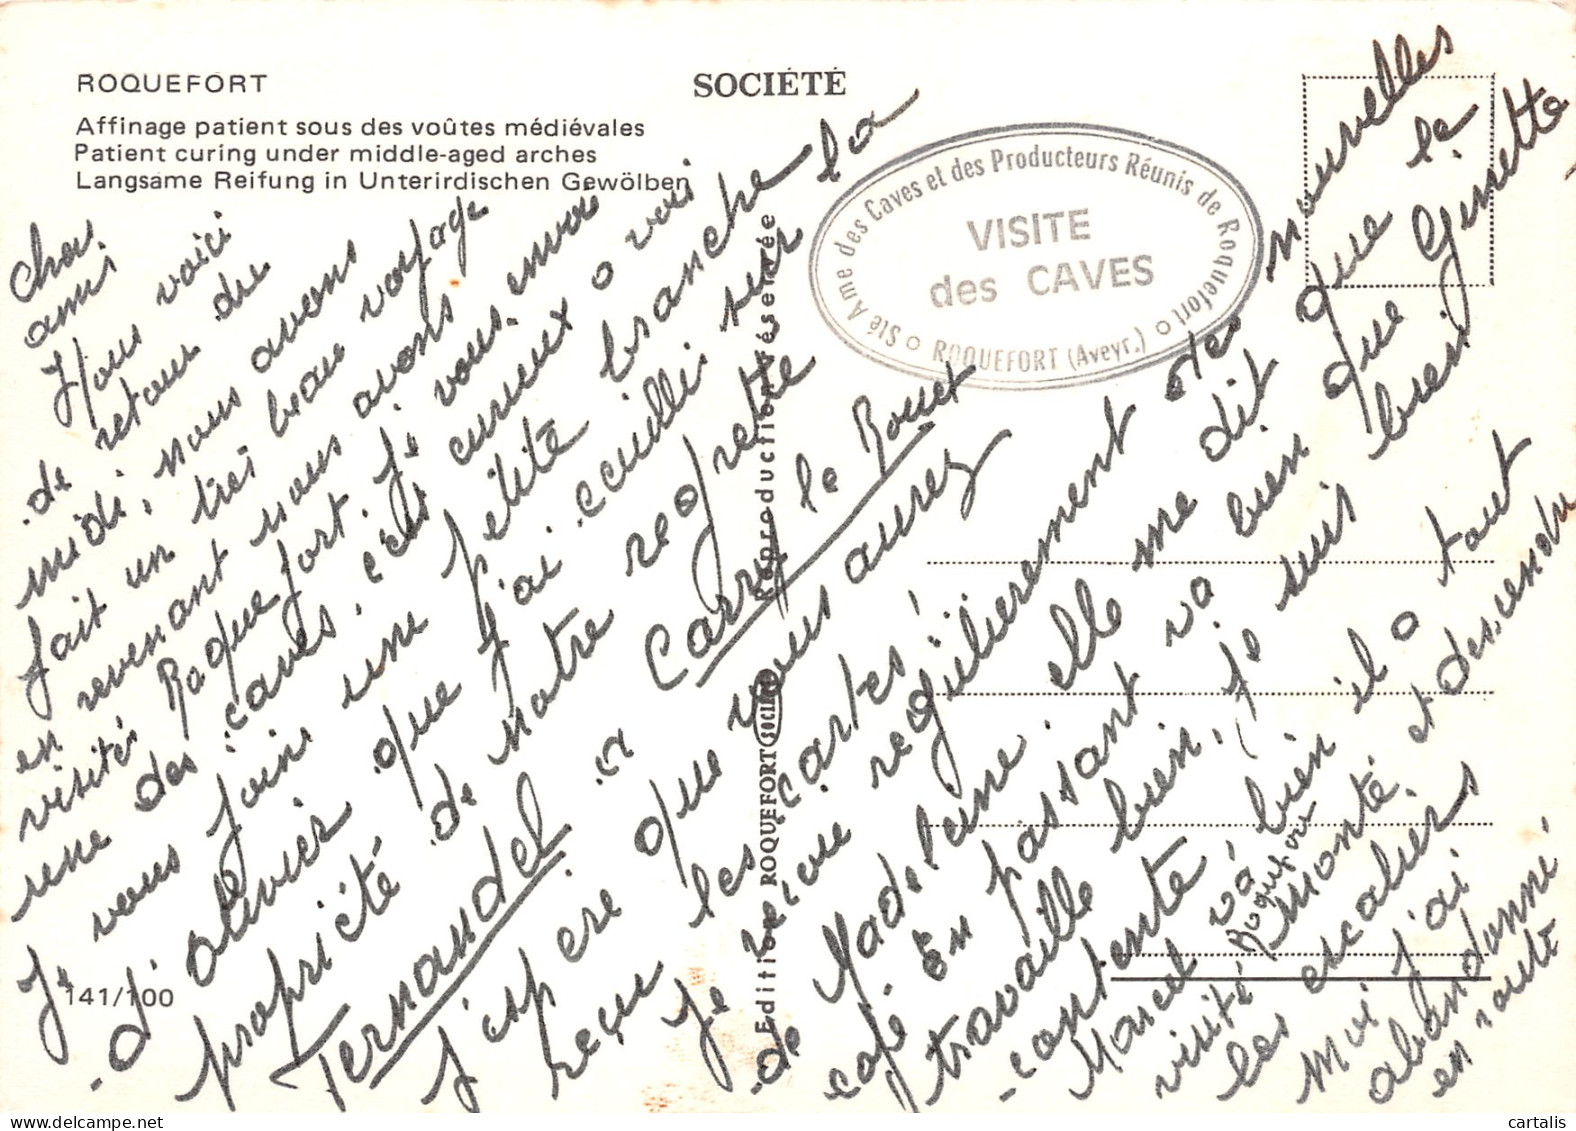 ROQUEFORT
SOCIÉTÉ
Affinage patient sous des voûtes médiévales
Patient curing under middle-aged arches
Langsame Reifung in Unterirdischen Gewölben
Sté Ame des Caves et des Producteurs Réunis de Roquefort
VISITE
des CAVES
ROQUEFORT (Aveyr.)
Reproduction réservée
Edition ROQUEFORT SOCIÉTÉ
141/100
Chers
ami
Nous voici
de retour du
midi, nous avons
fait un très beau voyage
en revenant nous avons
visités Roquefort, je vous envoi
une des caves, c'est curieux a voir
Je vous joins une petite branche
d'olivier que j'ai cueilli sur la
propriété de notre regretté
Fernandel a Carry le Rouet
J'espère que vous aurez
reçu les cartes!
Je reçoi regülierement des nouvelles
de Madeleine, elle me dit que le
café en passant va bien que Ginette
travaille bien, je suis bien
contente
Marcel va bien il a tout
visité Roquefort monté et dessendu
les escaliers
Moi j'ai
abandonné
en route
cartalis